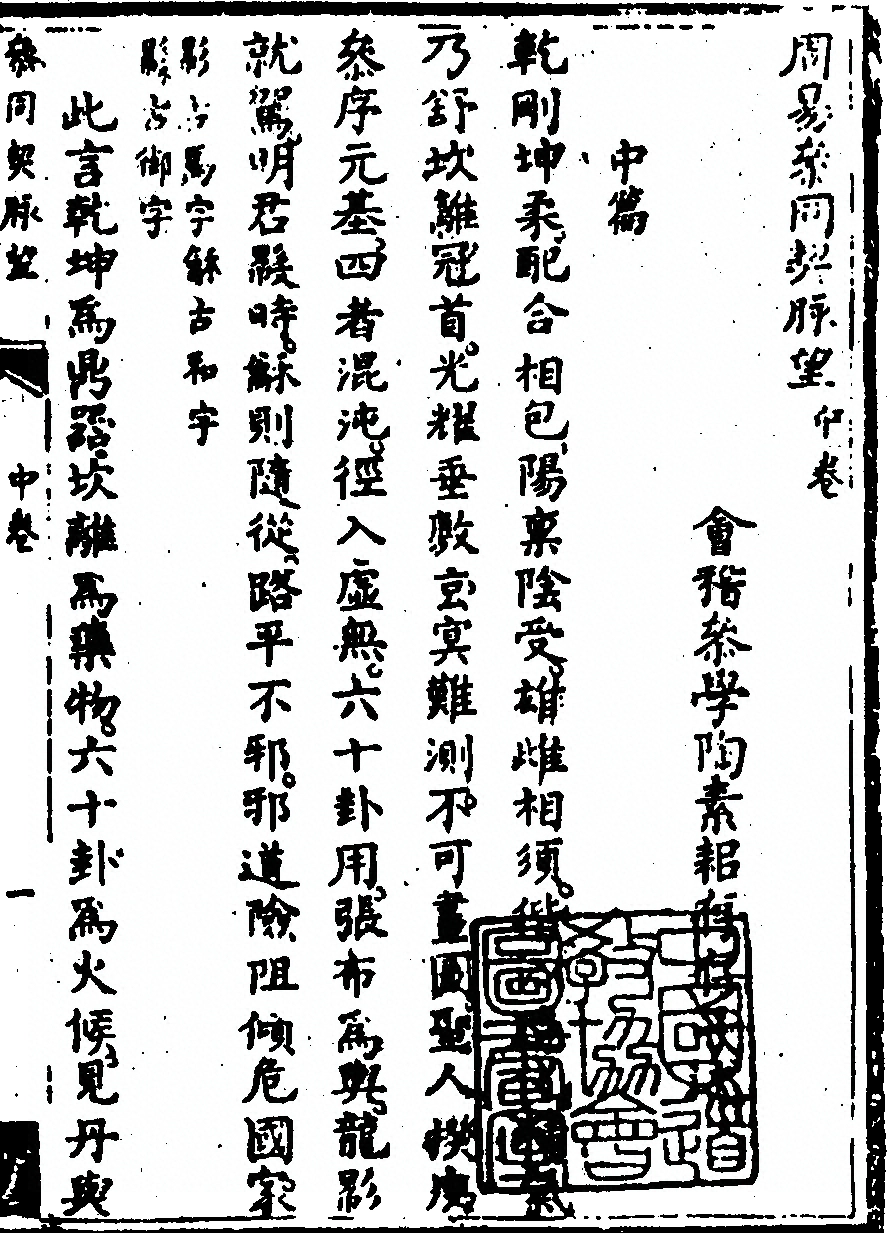 周易叅同契脉望 中卷
會稽叅學陶素耜存存子述
中篇
乾剛坤柔配合相包陽禀陰受雄雌相須偕氣
乃舒坎離冠首光耀垂敷玄冥難測不可畫圖聖人揆度
叅序元基四者混沌徑入虛無六十卦用張布為輿龍
就駕明君時龢則隨從路平不邪邪道險阻傾危國家
古馬字龢古和字
古御字
此言乾坤為鼎器坎離為藥物六十卦為火候見丹與
叅同契脉望 中卷 一